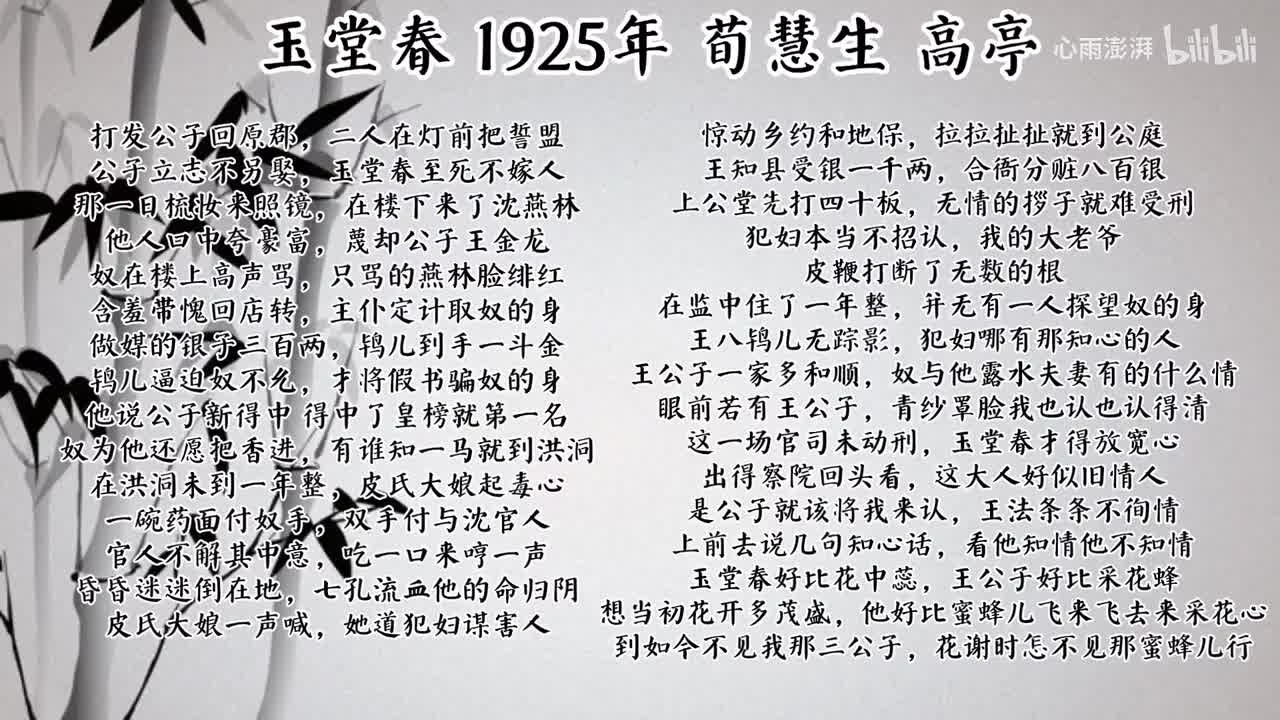 玉堂春 1925年 荀慧生 高亭
心雨澎湃 bilibili
打发公子回原郡，二人在灯前把誓盟
公子立志不另娶，玉堂春至死不嫁人
那一日梳妆来照镜，在楼下来了沈燕林
他人口中夸豪富，蔑却公子王金龙
奴在楼上高声骂，只骂的燕林脸绯红
含羞带愧回店转，主仆定计取奴的身
做媒的银子三百两，鸨儿到手一斗金
鸨儿逼迫奴不允，才将假书骗奴的身
他说公子新得中 得中了皇榜就第一名
奴为他还愿把香进，有谁知一马就到洪洞
在洪洞未到一年整，皮氏大娘起毒心
一碗药面付奴手，双手付与沈官人
官人不解其中意，吃一口来哼一声
昏昏迷迷倒在地，七孔流血他的命归阴
皮氏大娘一声喊，她道犯妇谋害人
惊动乡约和地保，拉拉扯扯就到公庭
王知县受银一千两，合衙分赃八百银
上公堂先打四十板，无情的拶子就难受刑
犯妇本当不招认，我的大老爷
皮鞭打断了无数的根
在监中住了一年整，并无有一人探望奴的身
王八鸨儿无踪影，犯妇哪有那知心的人
王公子一家多和顺，奴与他露水夫妻有的什么情
眼前若有王公子，青纱罩脸我也认也认得清
这一场官司未动刑，玉堂春才得放宽心
出得察院回头看，这大人好似旧情人
是公子就该将我来认，王法条条不徇情
上前去说几句知心话，看他知情他不知情
玉堂春好比花中蕊，王公子好比采花蜂
想当初花开多茂盛，他好比蜜蜂儿飞来飞去来采花心
到如今不见我那三公子，花谢时怎不见那蜜蜂儿行